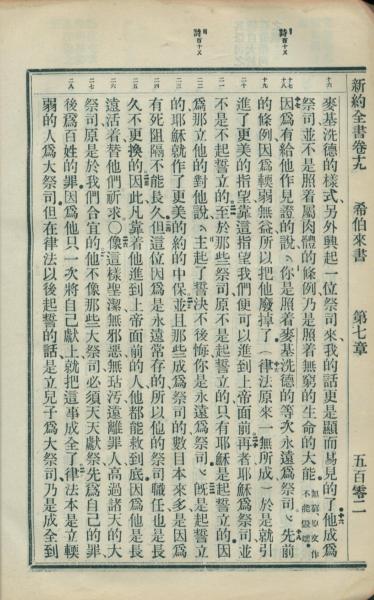 新約全書卷十九 希伯來書 第七章 五百零二
十六
麥基洗德的樣式另外興起一位祭司來我的話更是顯而易見的了他成爲
祭司並不是照着屬肉體的條例乃是照着無窮的生命的大能 無窮原文作不能毀壞
十七
因爲有給他作見證的說〻你是照着麥基洗德的等次永遠爲祭司〻先前
十九
的條例因爲輭弱無益所以把他廢掉了（律法原來一無所成）於是就引
二十
進了更美的指望靠這指望我們便可以進到上帝面前再者耶穌爲祭司並
二一
不是不起誓立的至於那些祭司原不是起誓立的只有耶穌是起誓立的因
爲那立他的對他說〻主起了誓決不後悔你是永遠爲祭司〻旣是起誓立
二二
的耶穌就作了更美的約的中保並且那些成爲祭司的數目本來多是因爲
二四
有死阻隔不能長久但這位因爲是永遠常存的所以他的祭司職任也是長
二五
久不更換的因此凡靠着他進到上帝面前的人他都能救到底因爲他是長
二六
遠活着替他們祈求○像這樣聖潔無邪惡無玷污遠離罪人高過諸天的大
二七
祭司原是於我們合宜的他不像那些大祭司必須天天獻祭先爲自己的罪
二八
後爲百姓的罪因爲他只一次將自己獻上就把這事成全了律法本是立輭
弱的人爲大祭司但在律法以後起誓的話是立兒子爲大祭司乃是成全到